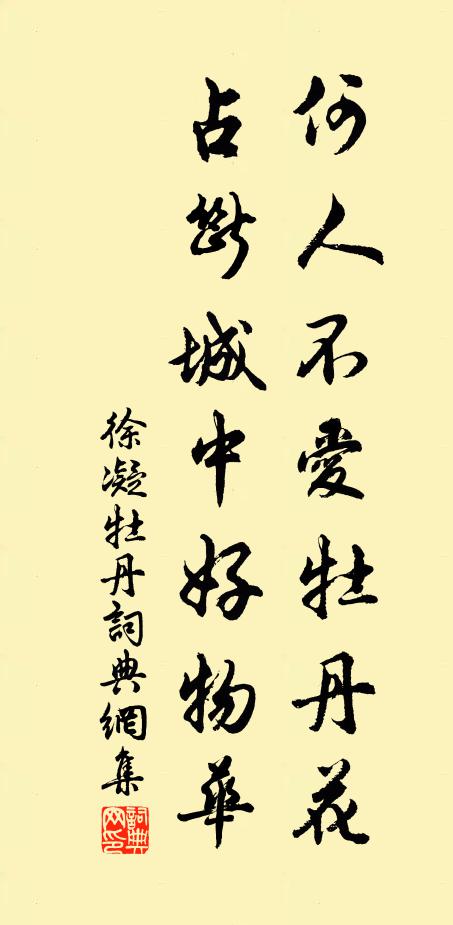 何人不愛牡丹花
占斷城中好物華
徐凝牡丹詞典網集
詞典網印